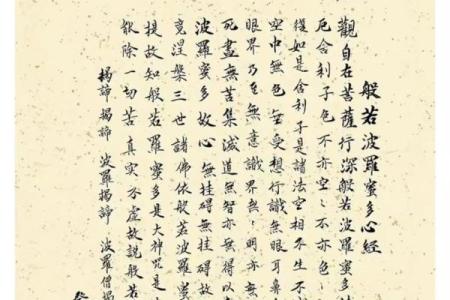 般若波羅蜜多心經
觀自在菩薩行深般若波羅蜜多
厄舍利子色不亦空〻不亦色
復如是舍利子是諸法空相不生不
空中無色無受想行識無眼耳鼻
眼界乃至無意識界無〻明亦無
死盡無苦集滅道無智亦無得以
波羅蜜多故心無挂礙無挂礙故
竟涅槃三世諸佛依般若波羅蜜
提故知般若羅蜜多是大神咒是
能除一切苦真實不虛故說般若
揭諦揭諦 波羅揭諦 波羅僧揭